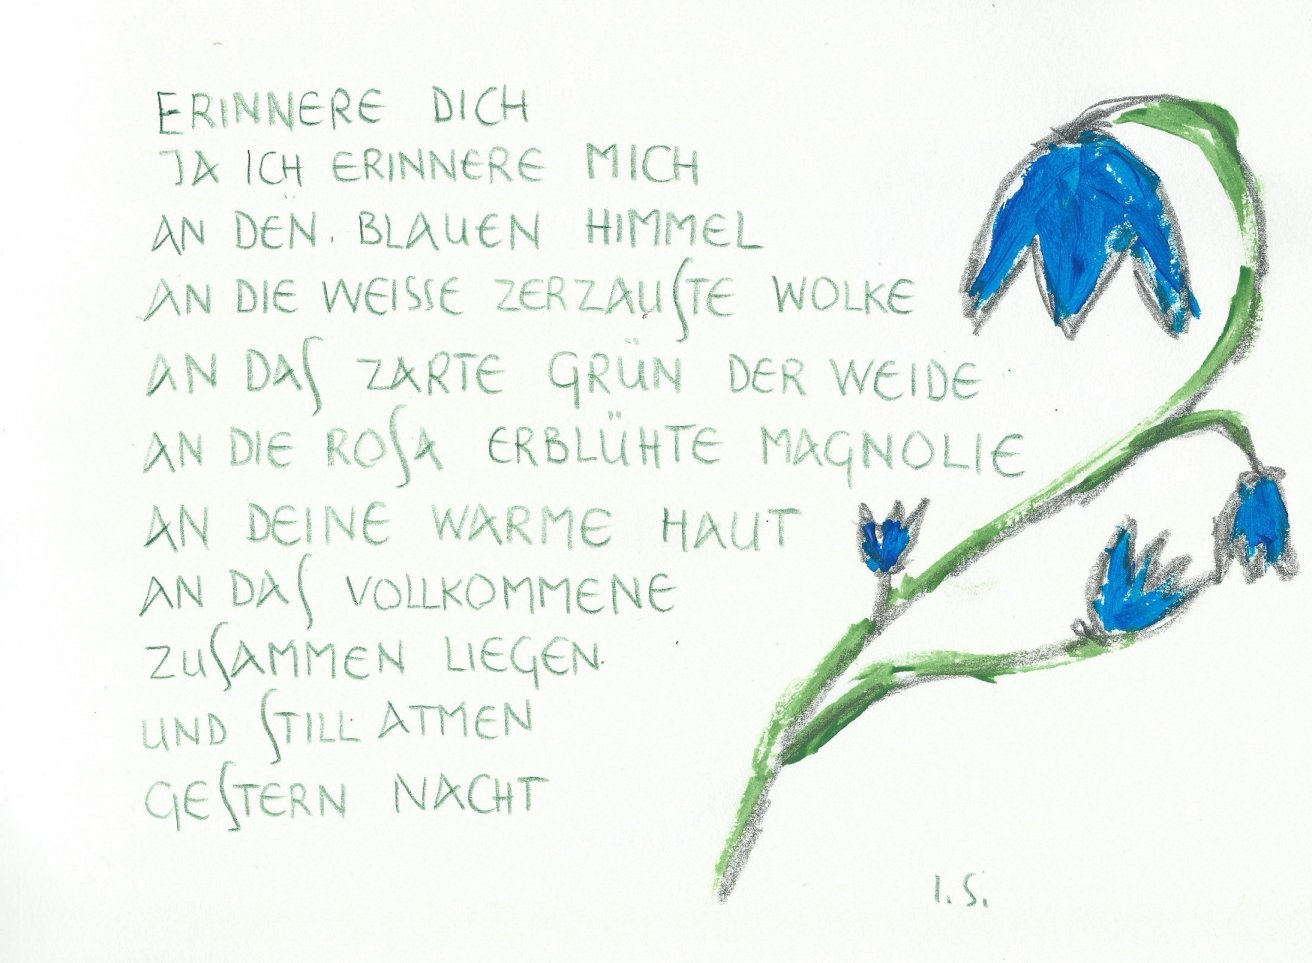 ERINNERE DICH
JA ICH ERINNERE MICH
AN DEN BLAUEN HIMMEL
AN DIE WEISSE ZERZAUSTE WOLKE
AN DAS ZARTE GRÜN DER WEIDE
AN DIE ROSA ERBLÜHTE MAGNOLIE
AN DEINE WARME HAUT
AN DAS VOLLKOMMENE
ZUSAMMEN LIEGEN
UND STILL ATMEN
GESTERN NACHT
I.S.